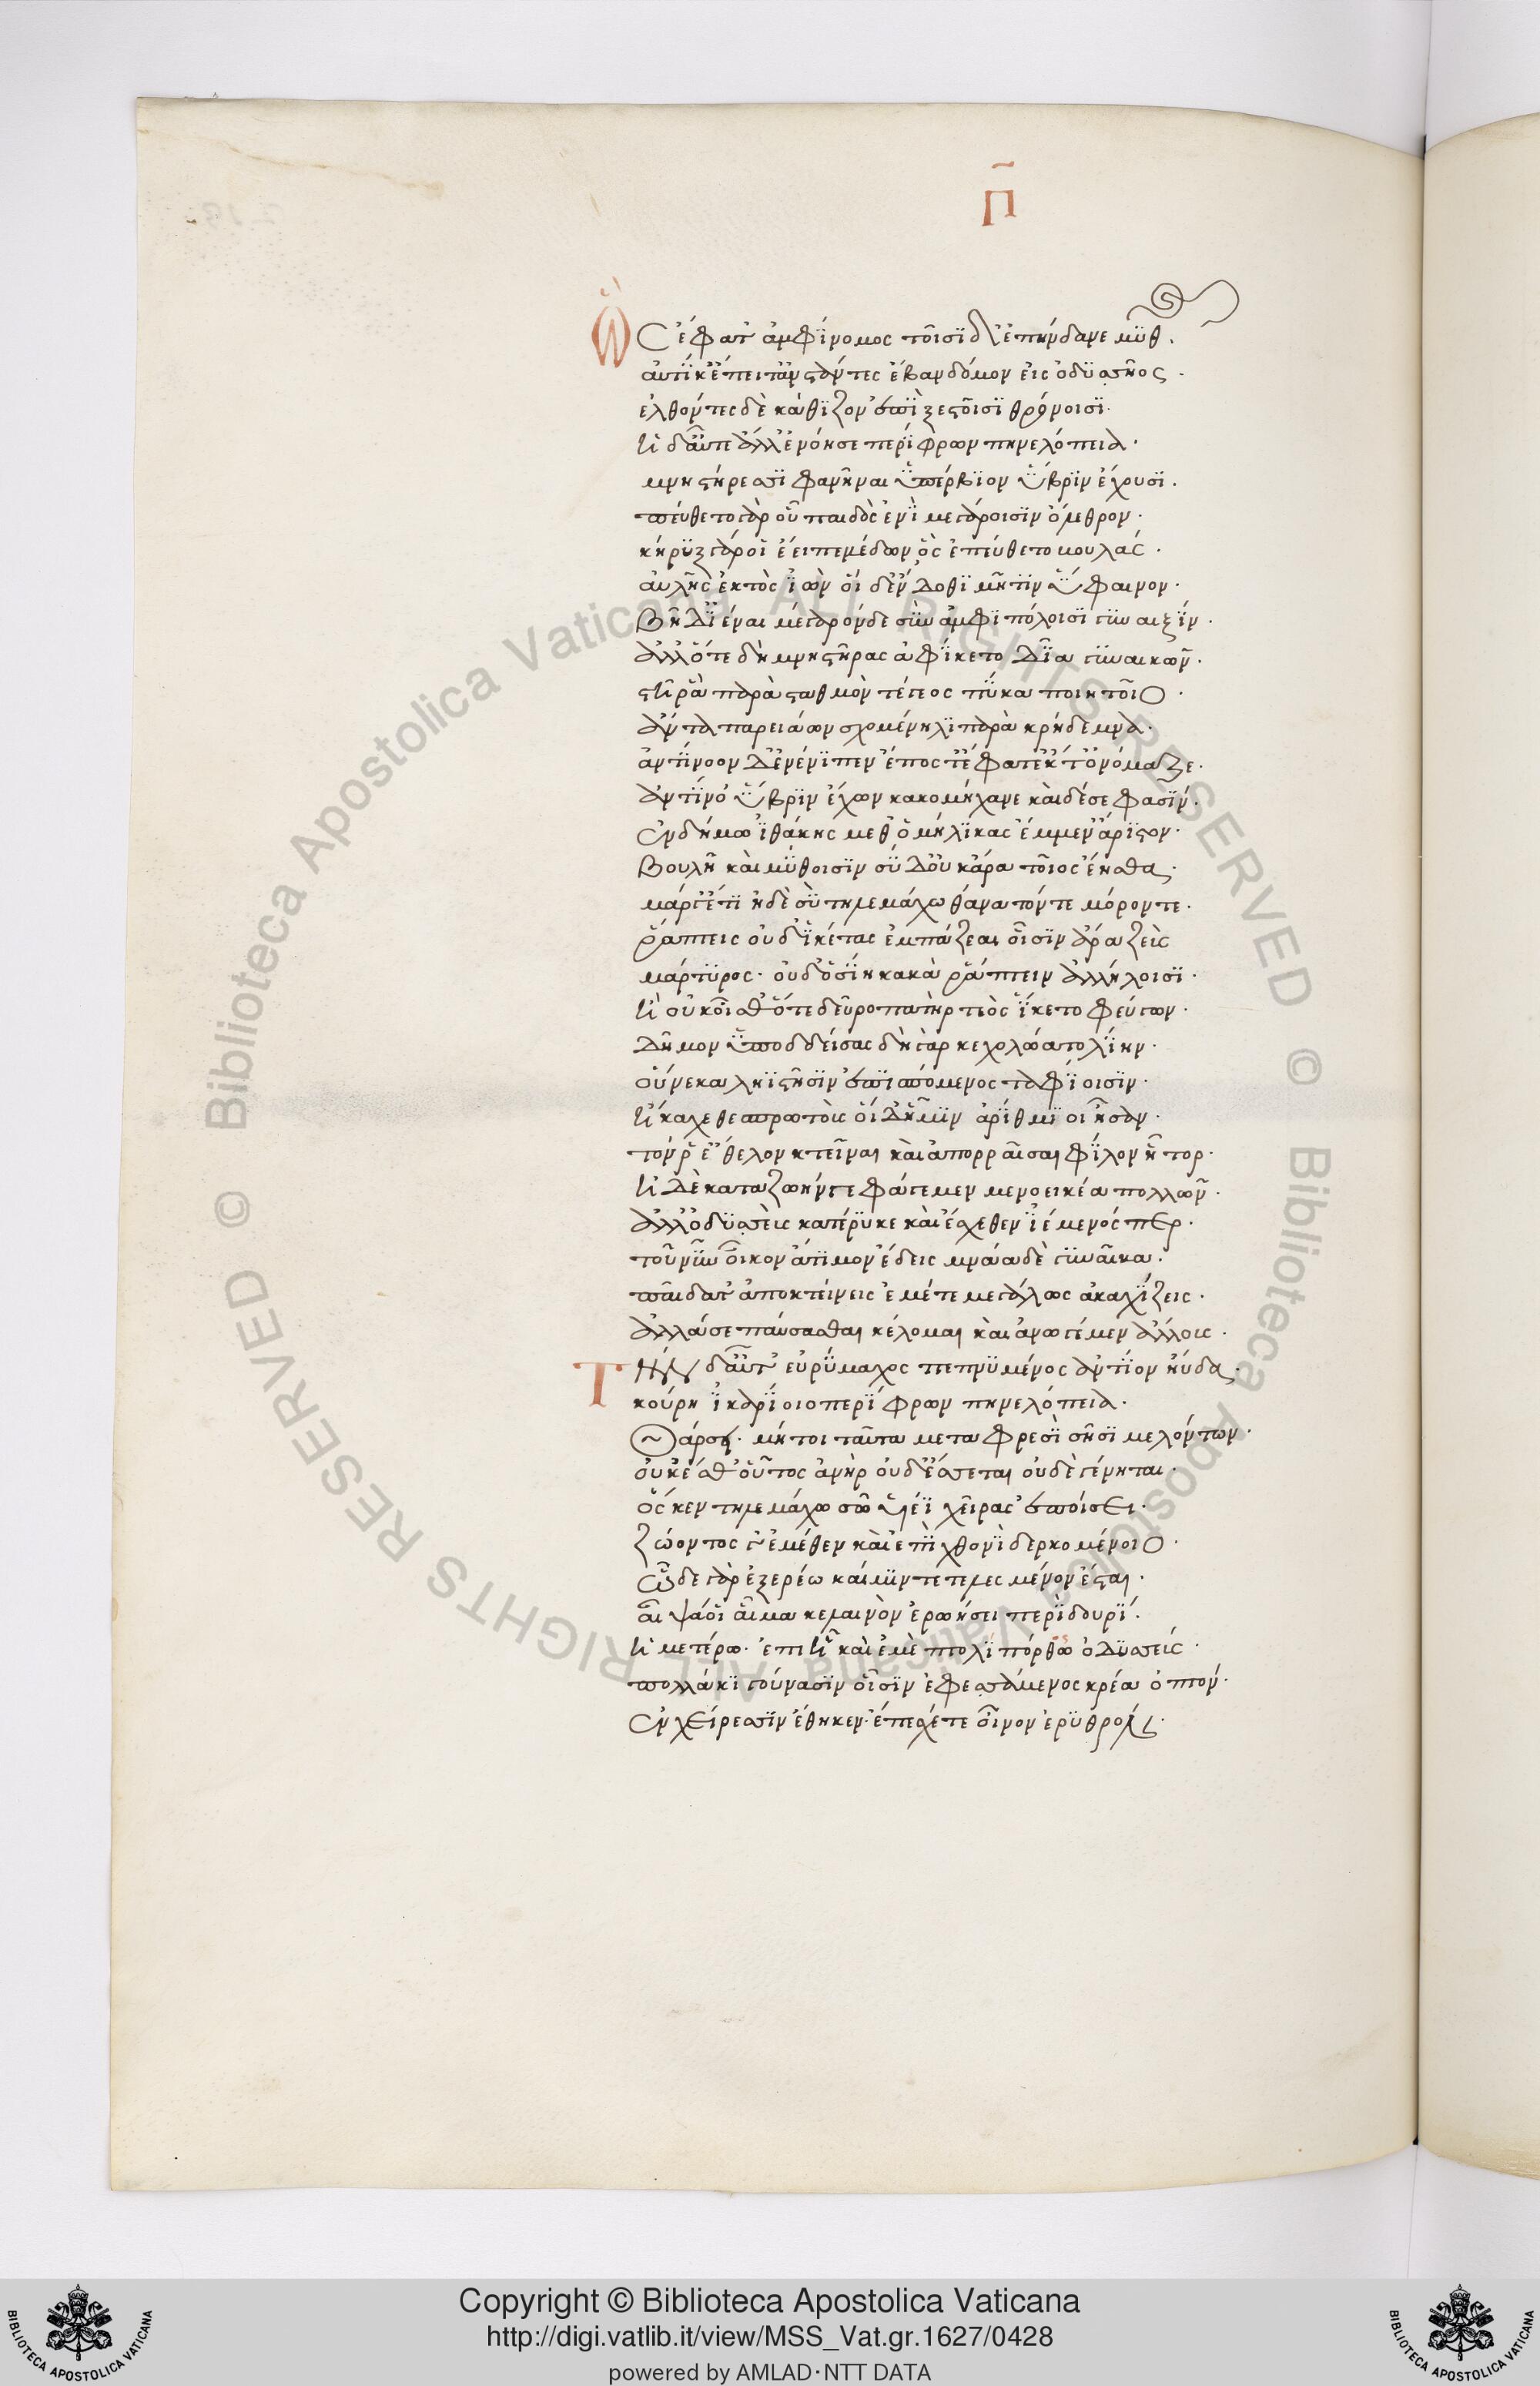 Π
Ὣς ἔφατ' ἀμφίνομος τοῖσϊ δ' ἐπήνδανε μῦθος.
αὐτίκ' ἔπειτ' ἀνστάντες ἔβαν δόμον εἰς ὀδυσῆος.
ἐλθόντες δὲ κάθιζον ἐπὶ ξεστοῖσι θρόνοισι.
ἡ δ' αὖτ' ἄλλ' ἐνόησε περίφρων πηνελόπεια.
μνηστήρεσσι φανῆναι ὑπέρβιον ὕβριν ἔχουσι.
πεύθετο γὰρ οὗ παιδὸς ἐνὶ μεγάροισιν ὄλεθρον.
κήρυξ γάρ οἱ ἔειπε μέδων, ὃς ἐπεύθετο βουλάς.
αὐλῆς ἐκτὸς ἰὼν οἱ δ' ἔνδοθι μῆτιν ὕφαινον.
βῆ δ' ἰέναι μέγαρόνδε σὺν ἀμφιπόλοισι γυναιξίν.
ἀλλ' ὅτε δὴ μνηστῆρας ἀφίκετο δῖα γυναικῶν.
στῆ ῥα παρὰ σταθμὸν τέγεος πύκα ποιητοῖο.
ἄντα παρειάων σχομένη λιπαρὰ κρήδεμνα.
ἀντίνοον δ' ἐνένιπεν ἔπος τ' ἔφατ' ἔκ τ' ὀνόμαζε.
ἀντίνο' ὕβριν ἔχων κακομήχανε καὶ δέ σε φασίν.
ἐν δήμω ἰθάκης μεθ' ὁμήλικας ἔμμεν ἄριστον.
βουλῆ καὶ μύθοισιν σὺ δ' οὐκ ἄρα τοῖος ἔησθα.
μάργε τίη δὲ σὺ τηλεμάχω θάνατόν τε μόρον τε.
ῥάπτεις οὐδ' ἱκέτας ἐμπάζεαι οἷσιν ἄρα ζεὺς
μάρτυρος. οὐδ' ὁσίη κακὰ ῥάπτειν ἀλλήλοισι.
ἢ οὐκ οἶσθ' ὅτε δεῦρο πατὴρ τεὸς ἵκετο φεύγων.
δῆμον ὑποδδείσας δὴ γὰρ κεχολώατο λίην.
οὕνεκα ληϊστῆσιν ἐπισπόμενος ταφίοισιν.
ἤκαχε θεσπρωτούς οἱ δ' ἡμῖν ἄρθμιοι ἦσαν.
τόν ῥ' ἔθελον κτεῖναι καὶ ἀπορραῖσαι φίλον ἦτορ.
ἠδὲ κατὰ ζωήν τε φάγεμεν μενοεικέα πολλήν.
ἀλλ' ὀδυσεὺς κατέρυκε καὶ ἔσχεθεν ἱέμενός περ.
τοῦ νῦν οἶκον ἄτιμον ἔδεις μνάα δὲ γυναῖκα.
παῖδα τ' ἀποκτείνεις ἐμέ τε μεγάλως ἀκαχίζεις.
ἀλλά σε παύσασθαι κέλομαι καὶ ἀνωγέμεν ἄλλους.
Τὴν δ' αὖτ' εὐρύμαχος πεπνυμένος ἀντίον ηὔδα.
κούρη ἰκαρίοιο περίφρων πηνελόπεια.
θάρσει. μή τοι ταῦτα μετὰ φρεσὶ σῆσι μελόντων.
οὐκ ἔσθ' οὗτος ἀνὴρ οὐδ' ἔσσεται οὐδὲ γένηται.
ὅς κεν τηλεμάχω σῶ υἱέϊ χεῖρας ἐποίσει.
ζώοντος γ' ἐμέθεν καὶ ἐπὶ χθονὶ δερκομένοιο.
ὧδε γὰρ ἐξερέω καὶ μὴν τετελεσμένον ἔσται.
αἶψά οἱ αἷμα κελαινὸν ἐρωήσει περὶ δουρί.
ἡμετέρω. ἐπιὴ καὶ ἐμὲ πτολίπορθος ὀδυσσεύς.
πολλάκι γούνασιν οἷσιν ἐφεσσάμενος κρέα ὀπτόν.
ἐν χείρεσσιν ἔθηκεν. ἐπέσχε τε οἶνον ἐρυθρόν.
© Biblioteca Apostolica Vaticana ALL RIGHTS RESERVED © Biblioteca Apostolica Vaticana ALL RIGHTS RESERVED
Copyright © Biblioteca Apostolica Vaticana
http://digi.vatlib.it/view/MSS_Vat.gr.1627/0428
powered by AMLAD·NTT DATA
BIBLIOTECA APOSTOLICA VATICANA
BIBLIOTECA APOSTOLICA VATICANA